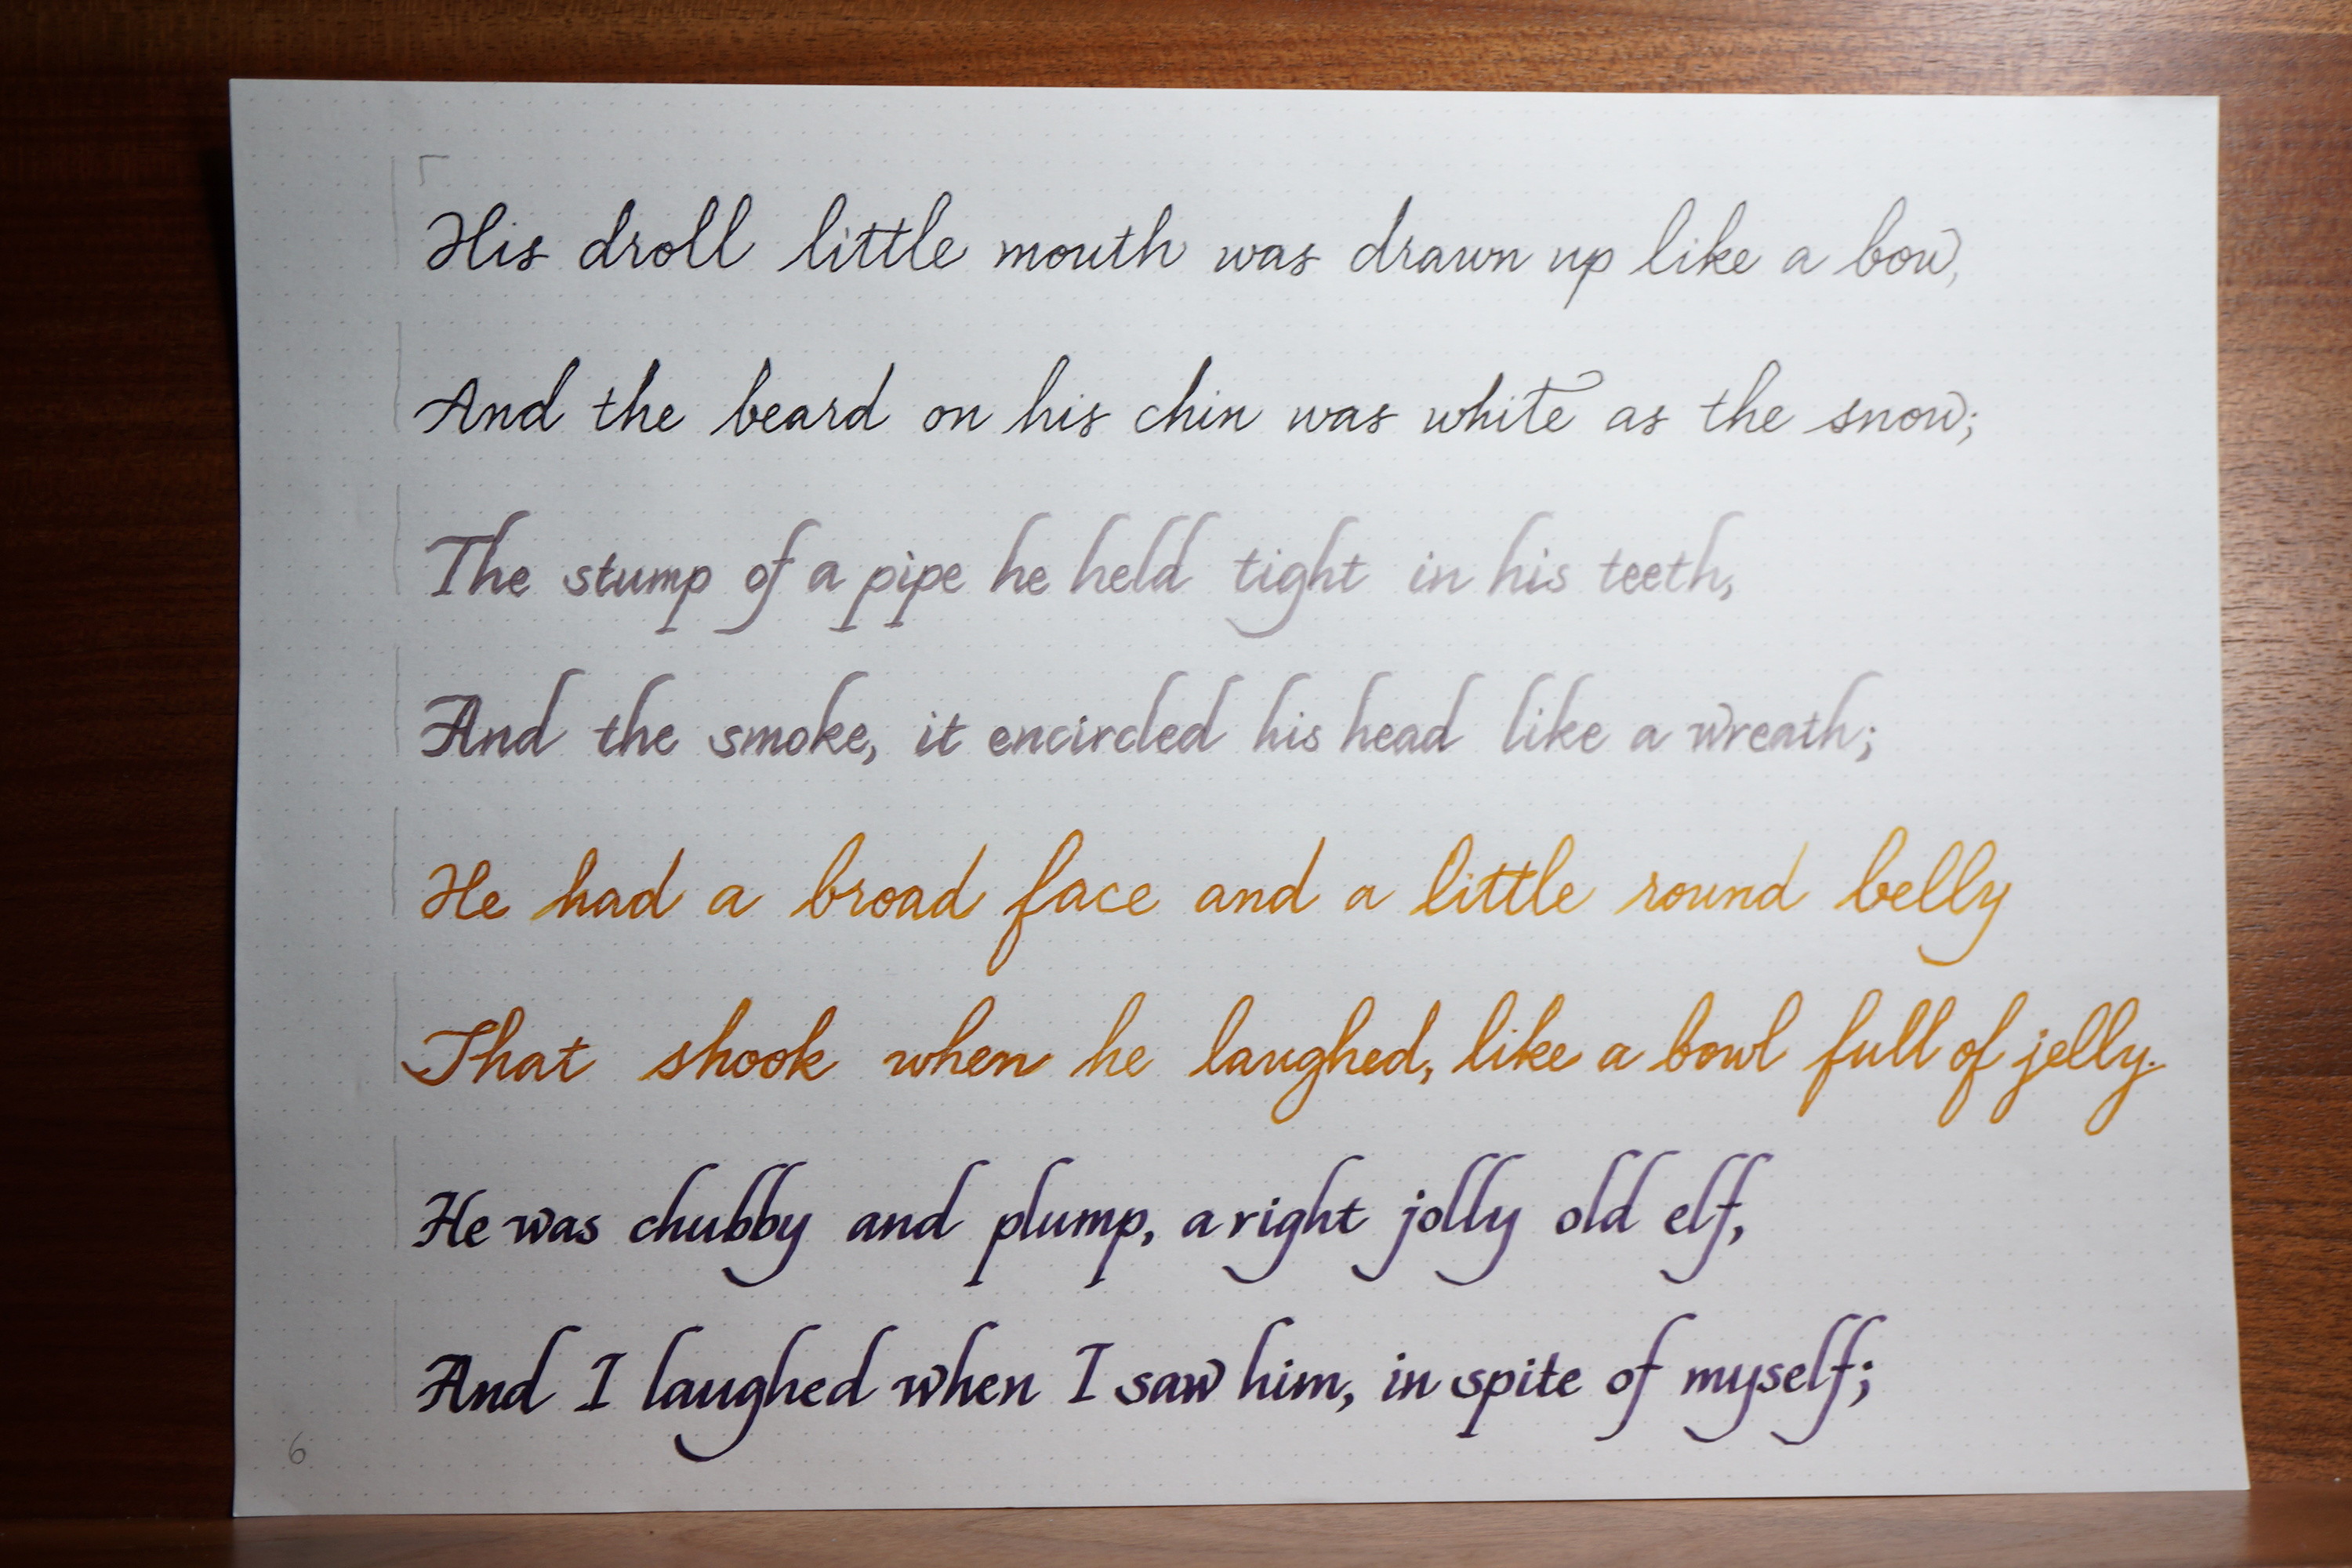 His droll little mouth was drawn up like a bow,
And the beard on his chin was white as the snow;
The stump of a pipe he held tight in his teeth,
And the smoke, it encircled his head like a wreath;
He had a broad face and a little round belly
That shook when he laughed, like a bowl full of jelly.
He was chubby and plump, a right jolly old elf,
And I laughed when I saw him, in spite of myself;
6